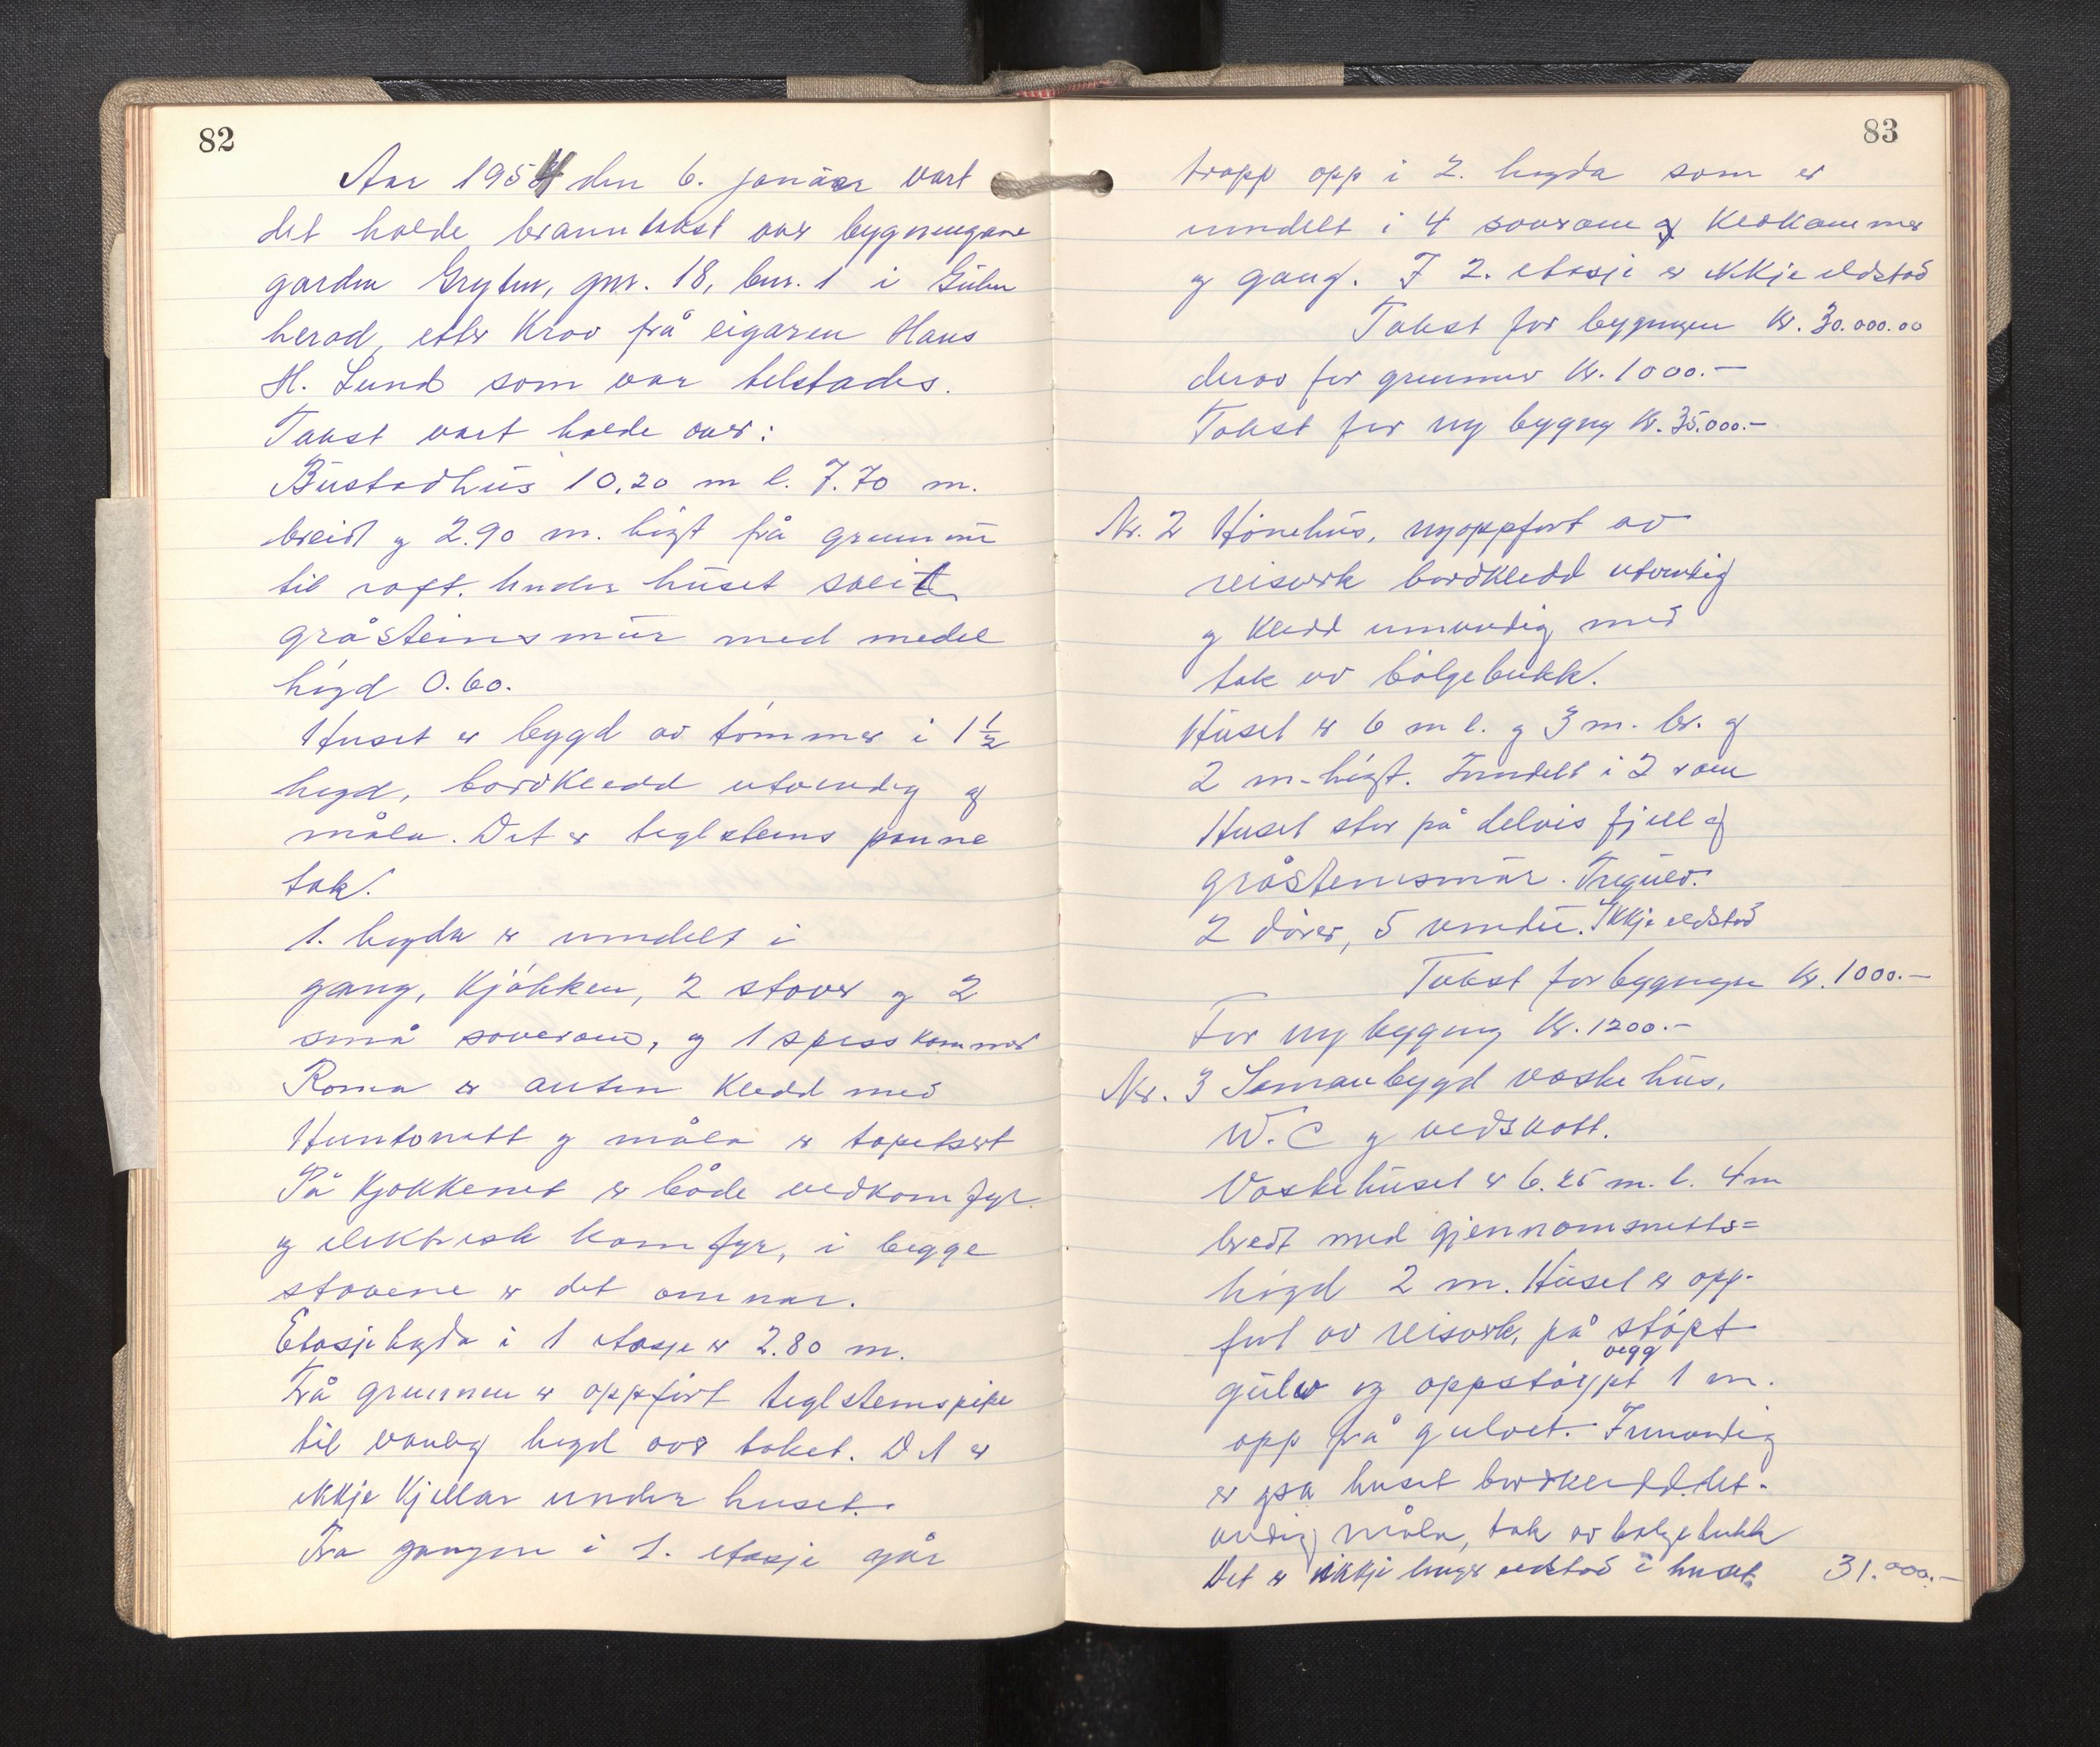 82
Aar 1954 den 6. januar vart
det halde branntakst over bygningane
garden Gryten, gnr. 18, bnr. 1 i Gulen
herad, etter krav frå eigaren Hans
H. Lund som var tilstades.
Takst vart halde over:
Bustadhus 10.20 m l. 7.70 m.
breidt og 2.90 m. högt frå grunnmur
til raft. Under huset solid
gråsteinsmur med medel
högd 0.60.
Huset er bygd av tömmer i 1½
högd, bordkledd utvendig og
måla. Det er teglsteins panne
tak.
1. högda er inndelt i
gang, kjökken, 2 stover og 2
små soverom, og 1 spisskammer
Roma er anten kledd med
Huntonett og måla er tapetsert
På kjökkenet er både vedkomfyr
og elektrisk komfyr, i begge
stovene er det omnar.
Etasjehögda i 1 etasje er 2.80 m.
Frå grunnen er oppfört teglsteinspipe
til vanleg högd over taket. Det er
ikkje kjellar under huset.
Fra gangen i 1. etasje går
83
trapp opp i 2. högda som er
inndelt i 4 soverom og kledkammer
og gang. I 2. etasje er ikkje eldstad
Takst for bygningen kr. 30.000.00
derav for grunnmur kr. 1000.-
Takst for ny bygning kr. 35.000.-
Nr. 2 Hönehus, nyoppfört av
reisverk bordkledd utvendig
og kledd innvendig med
tak av bölgeblikk.
Huset er 6 m l. og 3 m. br. og
2 m. högt. Inndelt i 2 rom
Huset står på delvis fjell og
gråsteinsmur. Tregulv.
2 dörer, 5 vindu. Ikkje eldstad
Takst for bygningen kr. 1000.-
For ny bygning kr. 1200.-
Nr. 3 Samanbygd vaskehus,
W.C og vedskott.
Vaskehuset er 6.25 m. l. 4 m
bredt med gjennomsnitts=
högd 2 m. Huset er opp-
fört av reisverk, på stöpt
gulv og oppstöypt vegg 1 m.
opp frå gulvet. Innvendig
er huset bordkledd. Ut-
vendig måla, tak av bölgeblikk
Det er ikkje eldstad i huset. 31.000.-